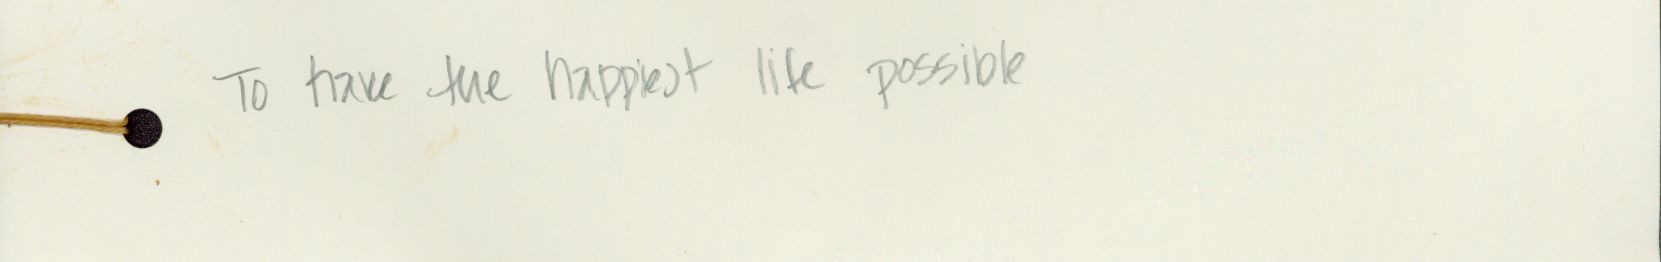 To have the happiest life possible